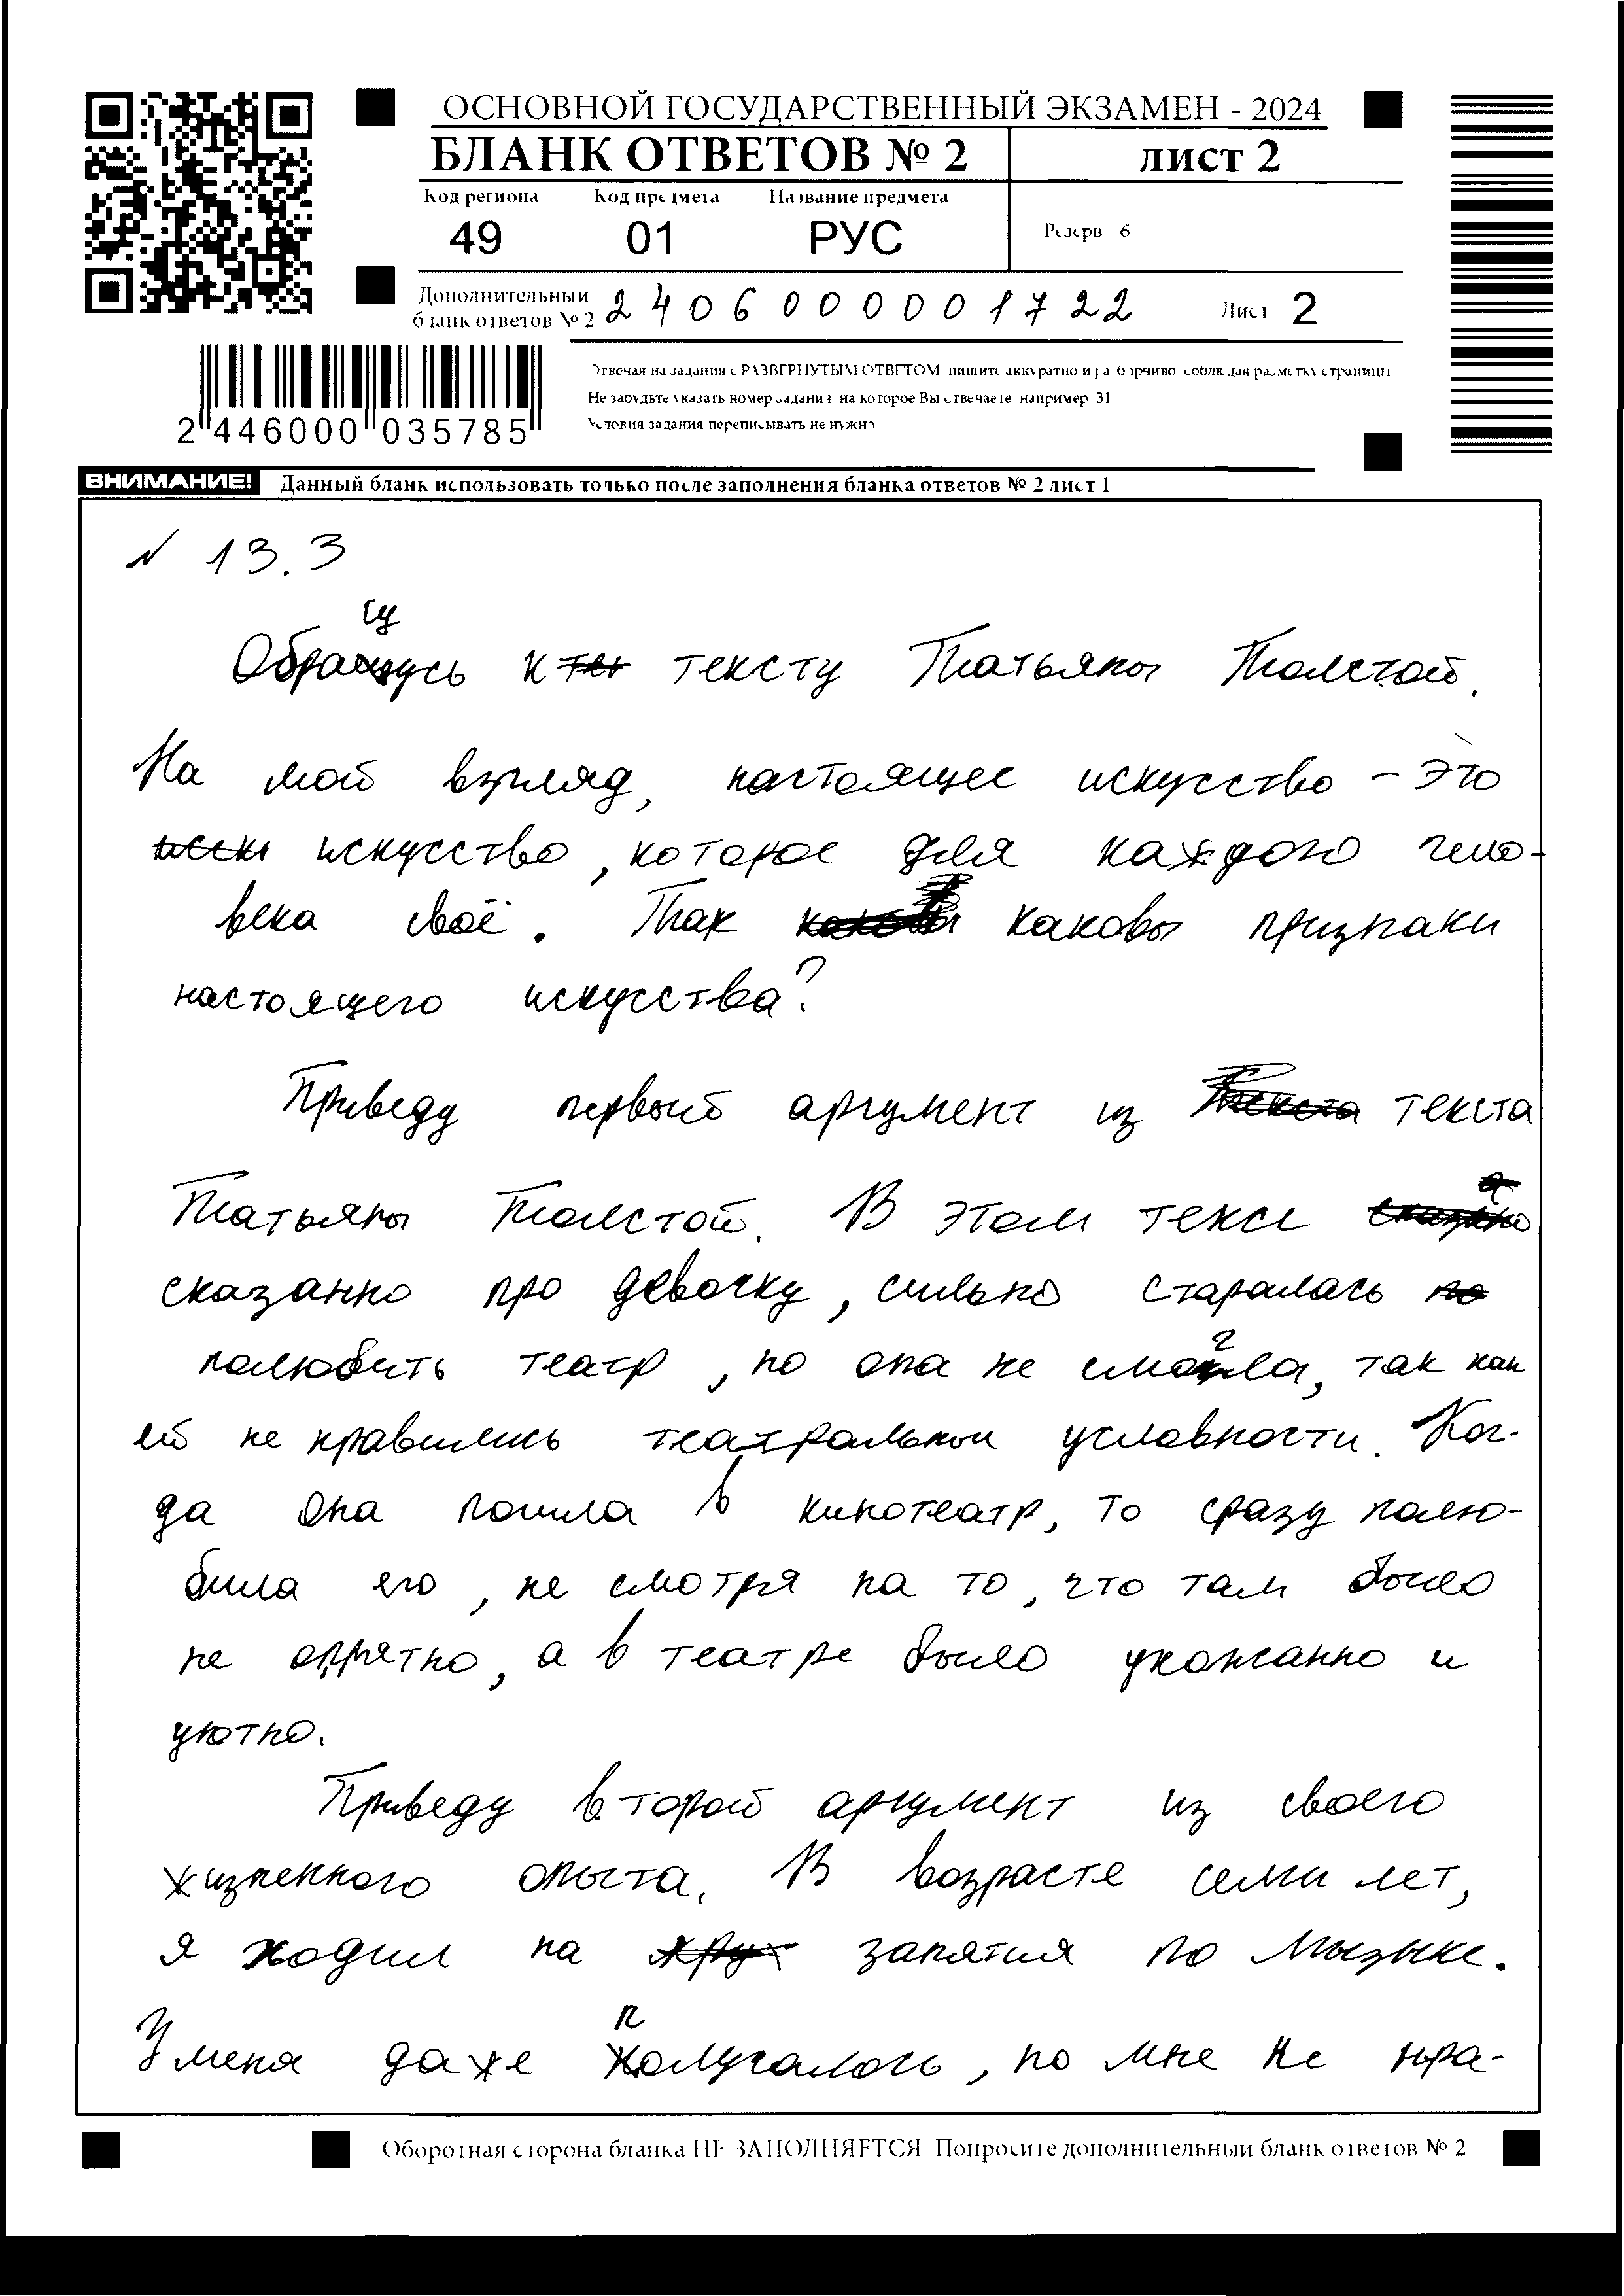 ОСНОВНОЙ ГОСУДАРСТВЕННЫЙ ЭКЗАМЕН - 2024
БЛАНК ОТВЕТОВ № 2
лист 2
Код региона
Код предмета
Название предмета
49
01
РУС
Резерв 6
Дополнительный
бланк ответов № 2
2406000001722
Лист 2
2 446000 035785
Отвечая на задания с РАЗВЕРНУТЫМ ОТВЕТОМ пишите аккуратно и разборчиво соблюдая разметку страницы
Не забудьте указать номер задания на которое Вы отвечаете например 31
Условия задания переписывать не нужно
ВНИМАНИЕ! Данный бланк использовать только после заполнения бланка ответов № 2 лист 1
N 13.3
Обращусь к тексту Татьяны Толстой.
На мой взгляд, настоящее искусство - это
искусство, которое для каждого чело-
века своё. Так каковы признаки
настоящего искусства?
Приведу первый аргумент из текста
Татьяны Толстой. В этом тексе
сказанно про девочку, сильно старалась
полюбить театр, но она не смогла, так как
ей не нравились театральнои условности. Ког-
да она пошла в кинотеатр, то сразу полю-
била его, не смотря на то, что там было
не опрятно, а в театре было ухожанно и
уютно.
Приведу второй аргумент из своего
жизненного опыта. В возрасте семи лет,
я ходил на занятия по мызыке.
У меня даже получалось, но мне не нра-
Оборотная сторона бланка НЕ ЗАПОЛНЯЕТСЯ Попросите дополнительный бланк ответов № 2